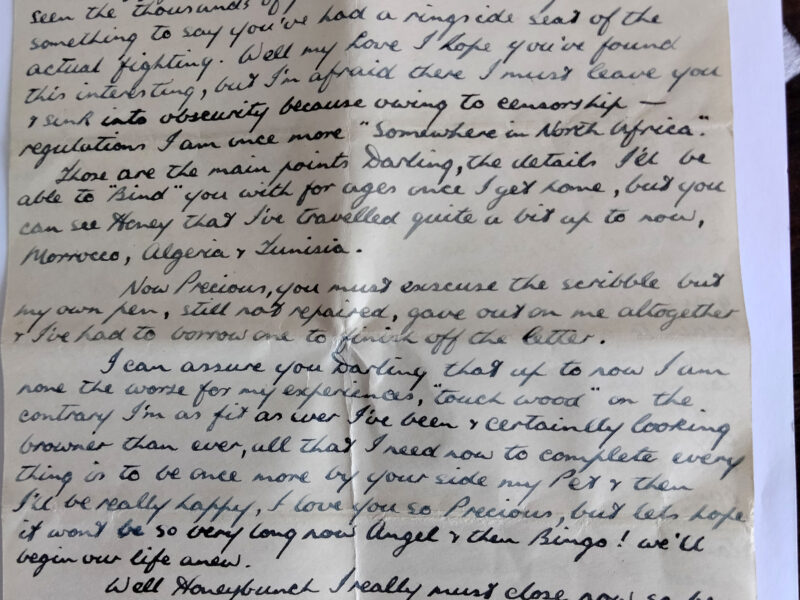 seen the thousands of
something to say you've had a ringside seat of the
actual fighting. Well my Love I hope you've found
this interesting, but I'm afraid there I must leave you
& sink into obscurity because owing to censorship —
regulations I am once more "Somewhere in North Africa".
Those are the main points Darling, the details I'll be
able to "Bind" you with for ages once I get home, but you
can see Honey that I've travelled quite a bit up to now,
Morrocco, Algeria & Tunisia.
Now Precious, you must exscuse the scribble but
my own pen, still not repaired, gave out on me altogether
& I've had to borrow one to finish off the letter.
I can assure you Darling that up to now I am
none the worse for my experiences, "touch wood" on the
contrary I'm as fit as ever I've been & certaindly looking
browner than ever, all that I need now to complete every
thing is to be once more by your side my Pet & then
I'll be really happy, I love you so Precious, but lets hope
it wont be so very long now Angel & then Bingo! we'll
begin our life anew.
Well Honeybunch I really must close now so be